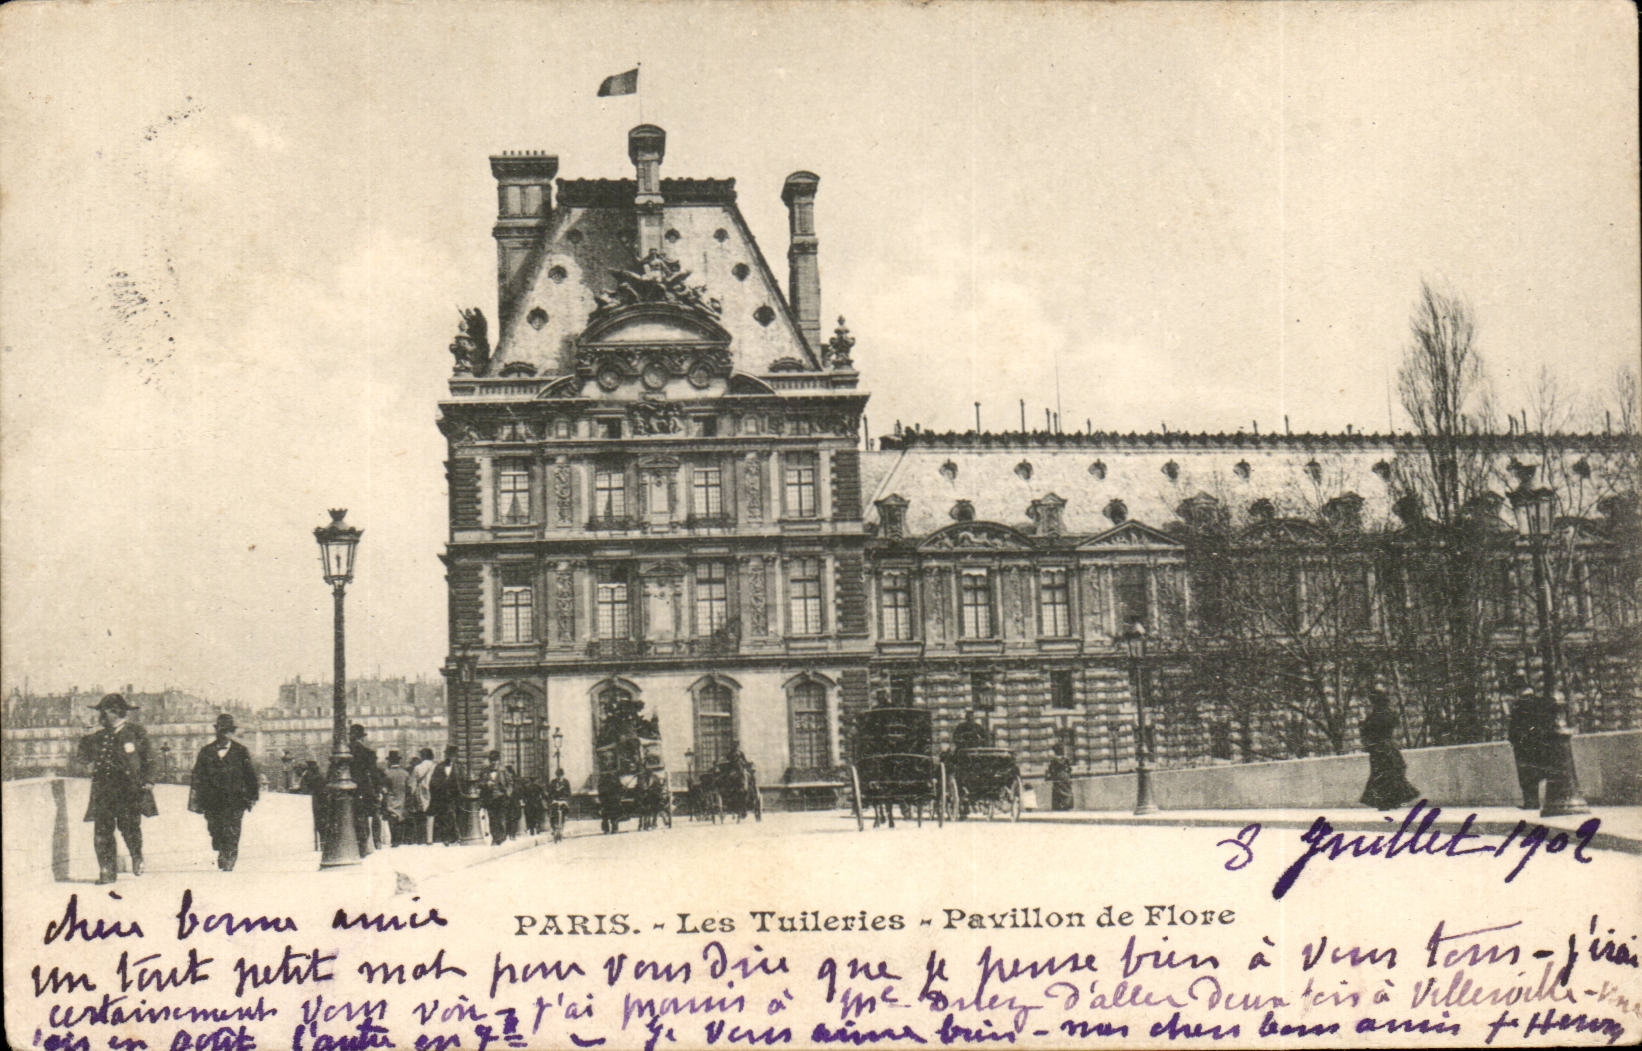 8 Juillet 1902
PARIS. - Les Tuileries - Pavillon de Flore
chère bonne amie
un tout petit mot pour vous dire que je pense bien à vous tous - j'irai
certainement vous voir - j'ai promis à Me d'aller deux fois à Villerville - une
fois en août l'autre en 7re - Je vous aime bien - mes chers bons amis